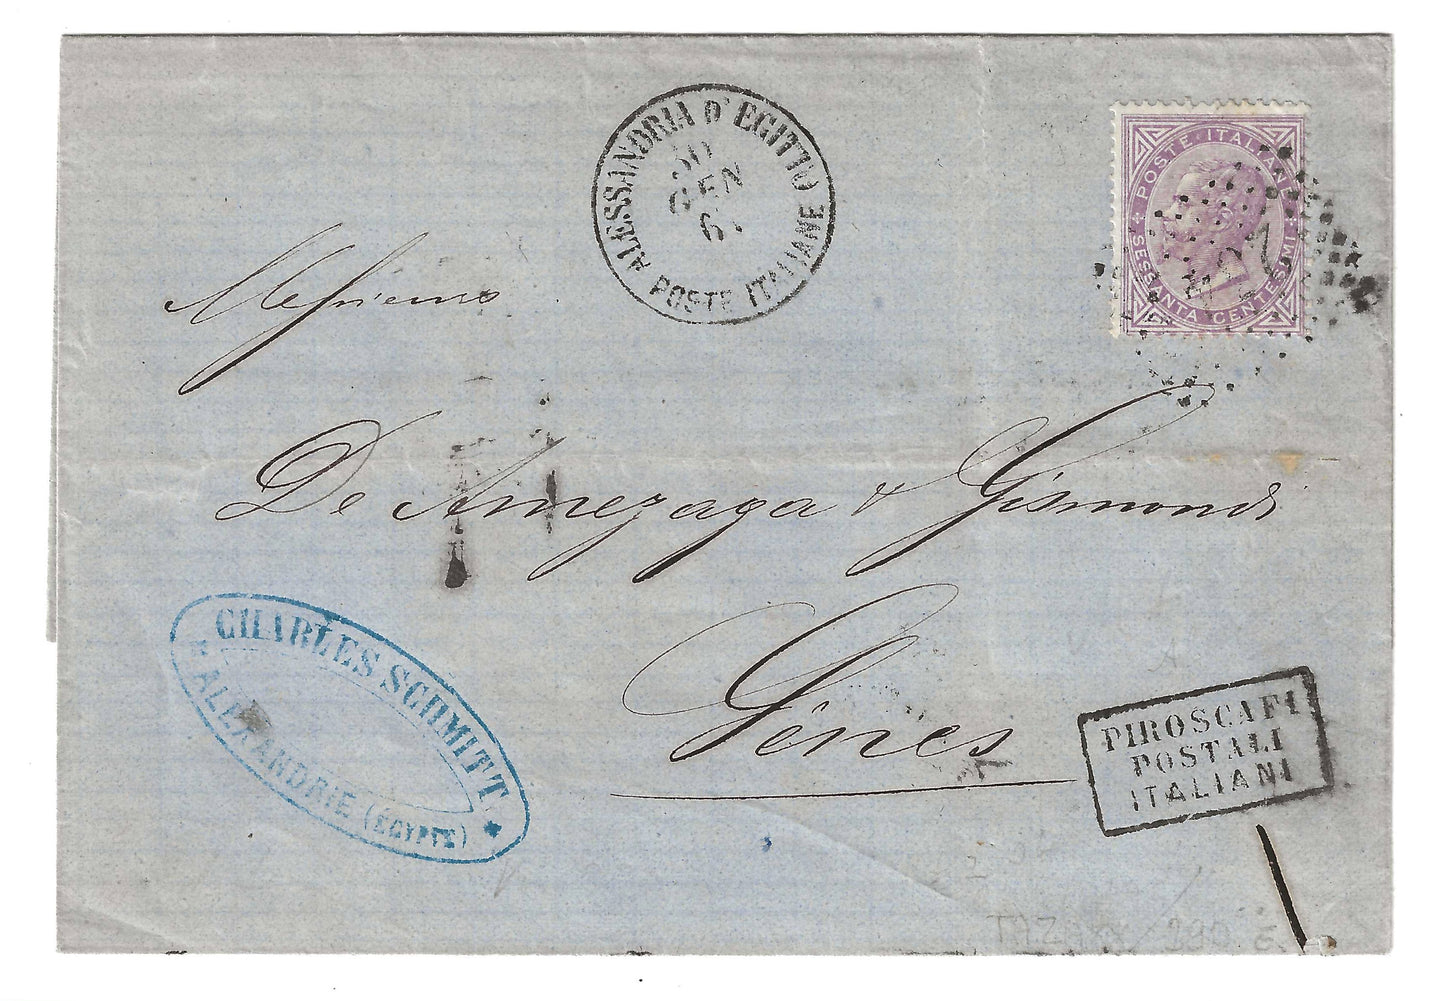 ALESSANDRIA D'EGITTO
30
GEN
POSTE ITALIANE
POSTE ITALIANE
SESSANTA CENTESIMI
Messieurs
De Amezaga & Gismondi
Gênes
CHARLES SCHMITT
ALEXANDRIE (EGYPTE)
PIROSCAFI
POSTALI
ITALIANI